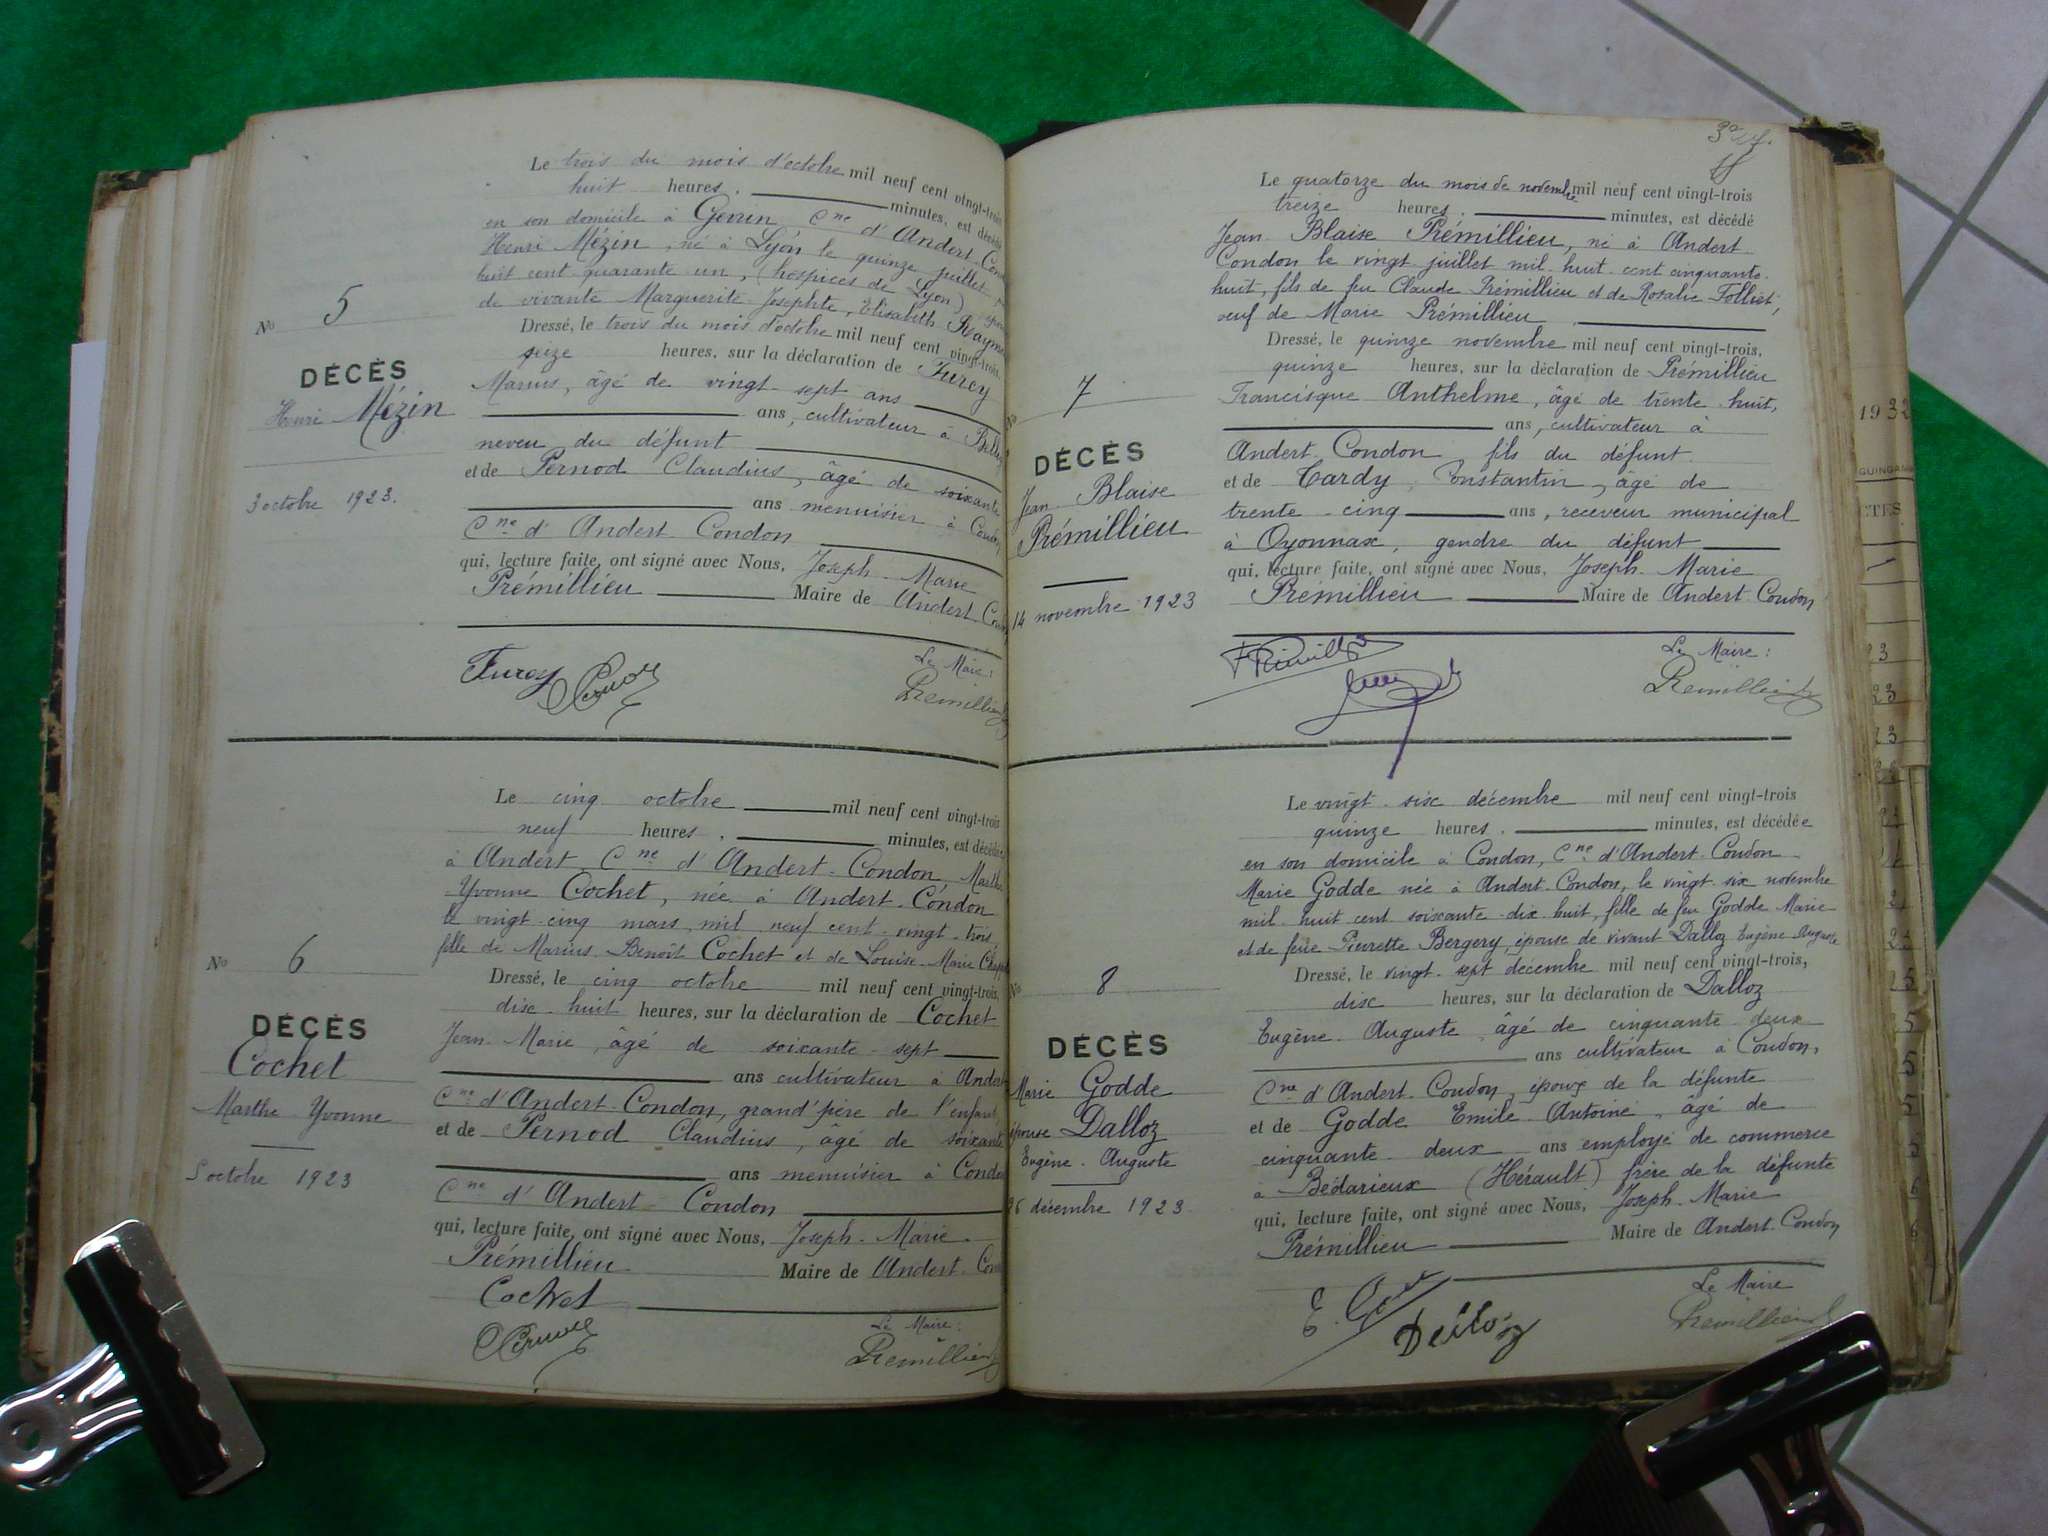 Le trois du mois d'octobre mil neuf cent vingt-trois
huit heures . minutes, est décédé
en son domicile à Gevrin Cne d'Andert-Con
Henri Mézin, né à Lyon le quinze juillet
huit cent quarante un, (hospices de Lyon) époux
de vivante Marguerite Josephte, Elisabeth Raym
Dressé, le trois du mois d'octobre mil neuf cent vingt-trois,
seize heures, sur la déclaration de Furey
Marius, âgé de vingt-sept ans
ans, cultivateur à Bell
neveu du défunt
et de Pernod Claudius, âgé de soixante
ans menuisier à Condon
Cne d'Andert-Condon
qui, lecture faite, ont signé avec Nous, Joseph-Marie
Prémillieu Maire de Andert-Con
Furey
Le Maire :
Premillieu
No 5
DÉCÈS
Henri Mézin
3 octobre 1923.
Le cinq octobre mil neuf cent vingt-trois
neuf heures . minutes, est décédée
à Andert Cne d'Andert-Condon, Marthe
Yvonne Cochet, née à Andert-Condon
le vingt-cinq mars mil neuf cent vingt-trois
fille de Marius-Benoît Cochet et de Louise-Marie
Dressé, le cinq octobre mil neuf cent vingt-trois,
dix-huit heures, sur la déclaration de Cochet
Jean-Marie, âgé de soixante-sept
ans cultivateur à Andert
Cne d'Andert-Condon, grand'père de l'enfant
et de Pernod Claudius, âgé de soixante
ans menuisier à Condon
Cne d'Andert-Condon
qui, lecture faite, ont signé avec Nous, Joseph-Marie
Prémillieu Maire de Andert-Con
Cochet
Le Maire :
Premillieu
No 6
DÉCÈS
Cochet
Marthe Yvonne
5 octobre 1923
Le quatorze du mois de novembre mil neuf cent vingt-trois
treize heures . minutes, est décédé
Jean Blaise Prémillieu, né à Andert-
Condon le vingt juillet mil huit cent cinquante-
huit, fils de feu Claude Prémillieu et de Rosalie Folliet,
veuf de Marie Prémillieu
Dressé, le quinze novembre mil neuf cent vingt-trois,
quinze heures, sur la déclaration de Prémillieu
Francisque Anthelme, âgé de trente-huit,
ans, cultivateur à
Andert-Condon fils du défunt
et de Cardy Constantin, âgé de
trente-cinq ans, receveur municipal
à Oyonnax, gendre du défunt
qui, lecture faite, ont signé avec Nous, Joseph-Marie
Prémillieu Maire de Andert-Condon
Le Maire :
Premillieu
No 7
DÉCÈS
Jean Blaise
Prémillieu
14 novembre 1923
Le vingt-six décembre mil neuf cent vingt-trois
quinze heures . minutes, est décédée
en son domicile à Condon, Cne d'Andert-Condon
Marie Godde née à Andert-Condon, le vingt-six novembre
mil huit cent soixante-dix-huit, fille de feu Godde Marie
et de feue Pierrette Bergery, épouse de vivant Dalloz Eugène Auguste
Dressé, le vingt-sept décembre mil neuf cent vingt-trois,
dix heures, sur la déclaration de Dalloz
Eugène Auguste, âgé de cinquante-deux
ans cultivateur à Condon,
Cne d'Andert-Condon, époux de la défunte
et de Godde Emile-Antoine, âgé de
cinquante-deux ans employé de commerce
à Bédarieux (Hérault) frère de la défunte
qui, lecture faite, ont signé avec Nous, Joseph-Marie
Prémillieu Maire de Andert-Condon
Le Maire
Premillieu
No 8
DÉCÈS
Marie Godde
épouse Dalloz
Eugène-Auguste
26 décembre 1923